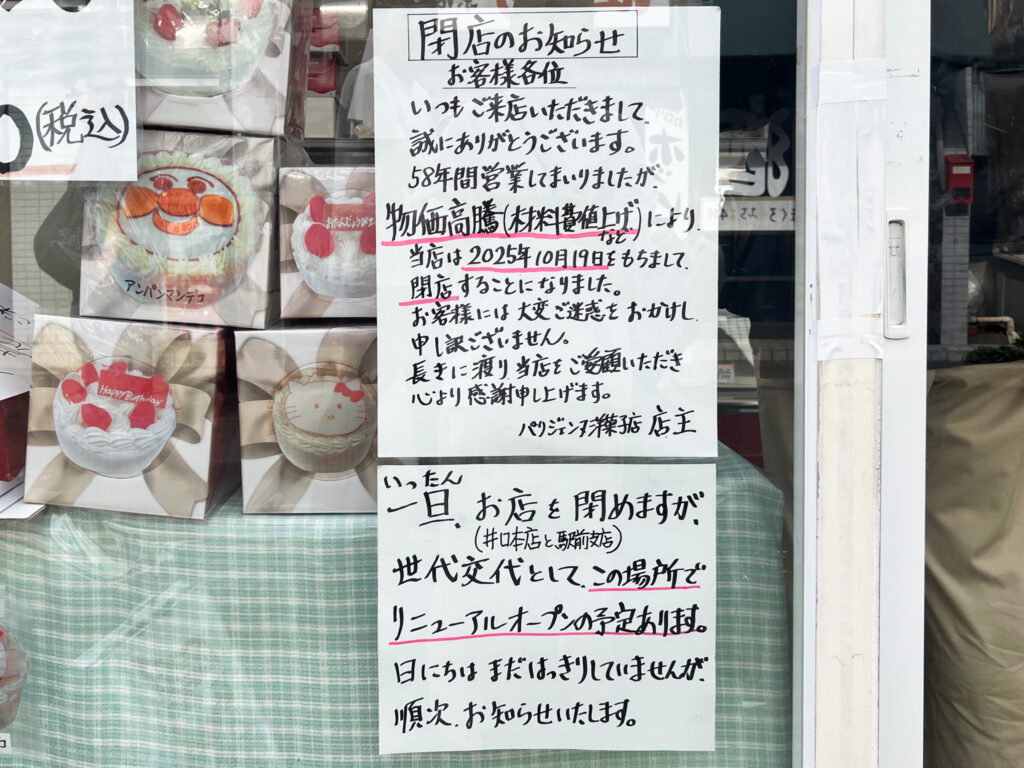 (税込)
アンパンマンデコ
おたんじょうび
Happy Birthday
閉店のお知らせ
お客様各位
いつもご来店いただきまして、
誠にありがとうございます。
58年間営業してまいりましたが、
物価高騰(材料費値上げなど)により、
当店は2025年10月19日をもちまして、
閉店することになりました。
お客様には大変ご迷惑をおかけし
申し訳ございません。
長きに渡り当店をご愛顧いただき
心より感謝申し上げます。
パリジェンヌ洋菓子店 店主
いったん
一旦、お店を閉めますが、
(井口本店と駅前支店)
世代交代として、この場所で
リニューアルオープンの予定あります。
日にちはまだはっきりしていませんが、
順次、お知らせいたします。